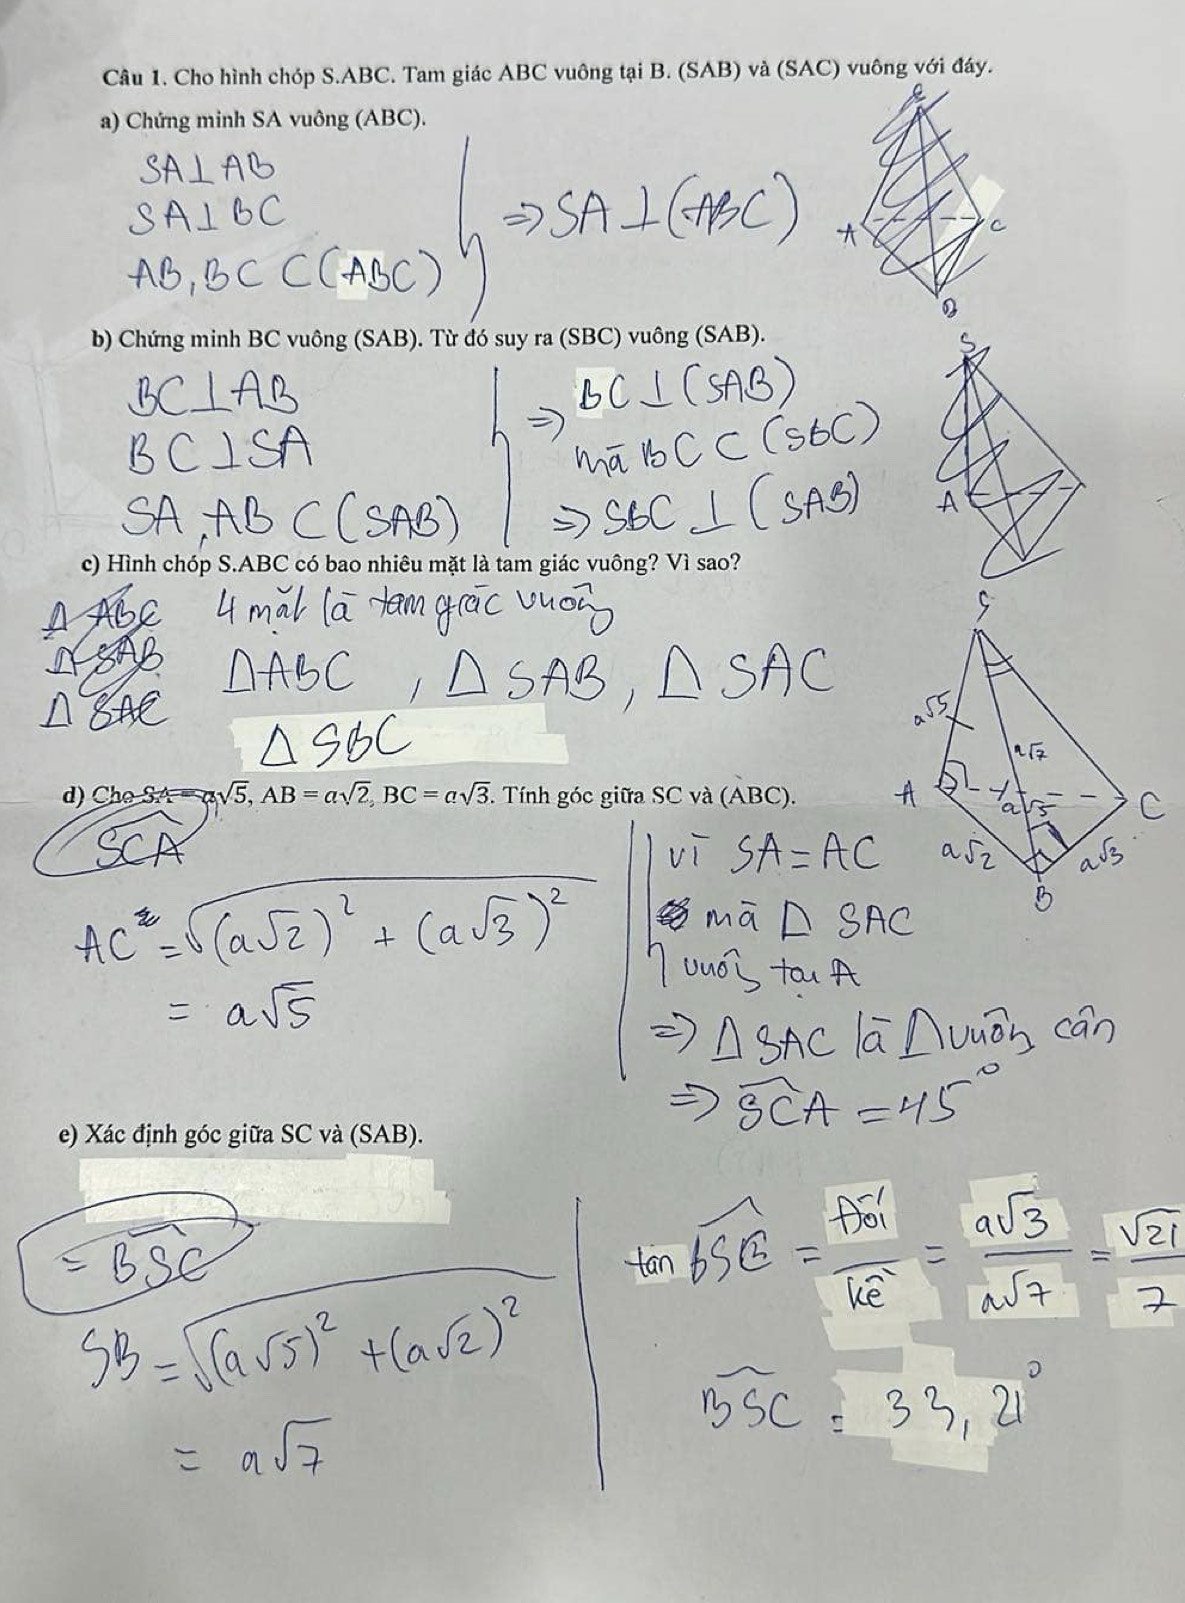 Câu 1. Cho hình chóp S.ABC. Tam giác ABC vuông tại B. (SAB) và (SAC) vuông với đáy.
a) Chứng minh SA vuông (ABC).
SA⊥AB
SA⊥BC
AB, BC ⊂ (ABC)
⇒ SA ⊥ (ABC)
A
C
B
b) Chứng minh BC vuông (SAB). Từ đó suy ra (SBC) vuông (SAB).
BC⊥AB
BC⊥SA
SA, AB ⊂ (SAB)
⇒ BC ⊥ (SAB)
mà BC ⊂ (SBC)
⇒ SBC ⊥ (SAB)
S
A
c) Hình chóp S.ABC có bao nhiêu mặt là tam giác vuông? Vì sao?
Δ ABC
Δ SAB
Δ SAC
4 mặt là tam giác vuông
ΔABC, Δ SAB, Δ SAC
Δ SBC
S
a√5
a√7
A
a√5
C
a√2
a√3
B
d) Cho SA = a√5, AB = a√2, BC = a√3. Tính góc giữa SC và (ABC).
SCA
AC = √(a√2)² + (a√3)²
= a√5
vì SA = AC
mà Δ SAC
vuông tại A
⇒ Δ SAC là Δ vuông cân
⇒ SCA = 45°
e) Xác định góc giữa SC và (SAB).
= BSC
SB = √(a√5)² + (a√2)²
= a√7
tan BSC = Đối / kề = a√3 / a√7 = √21 / 7
BSC = 33,21°